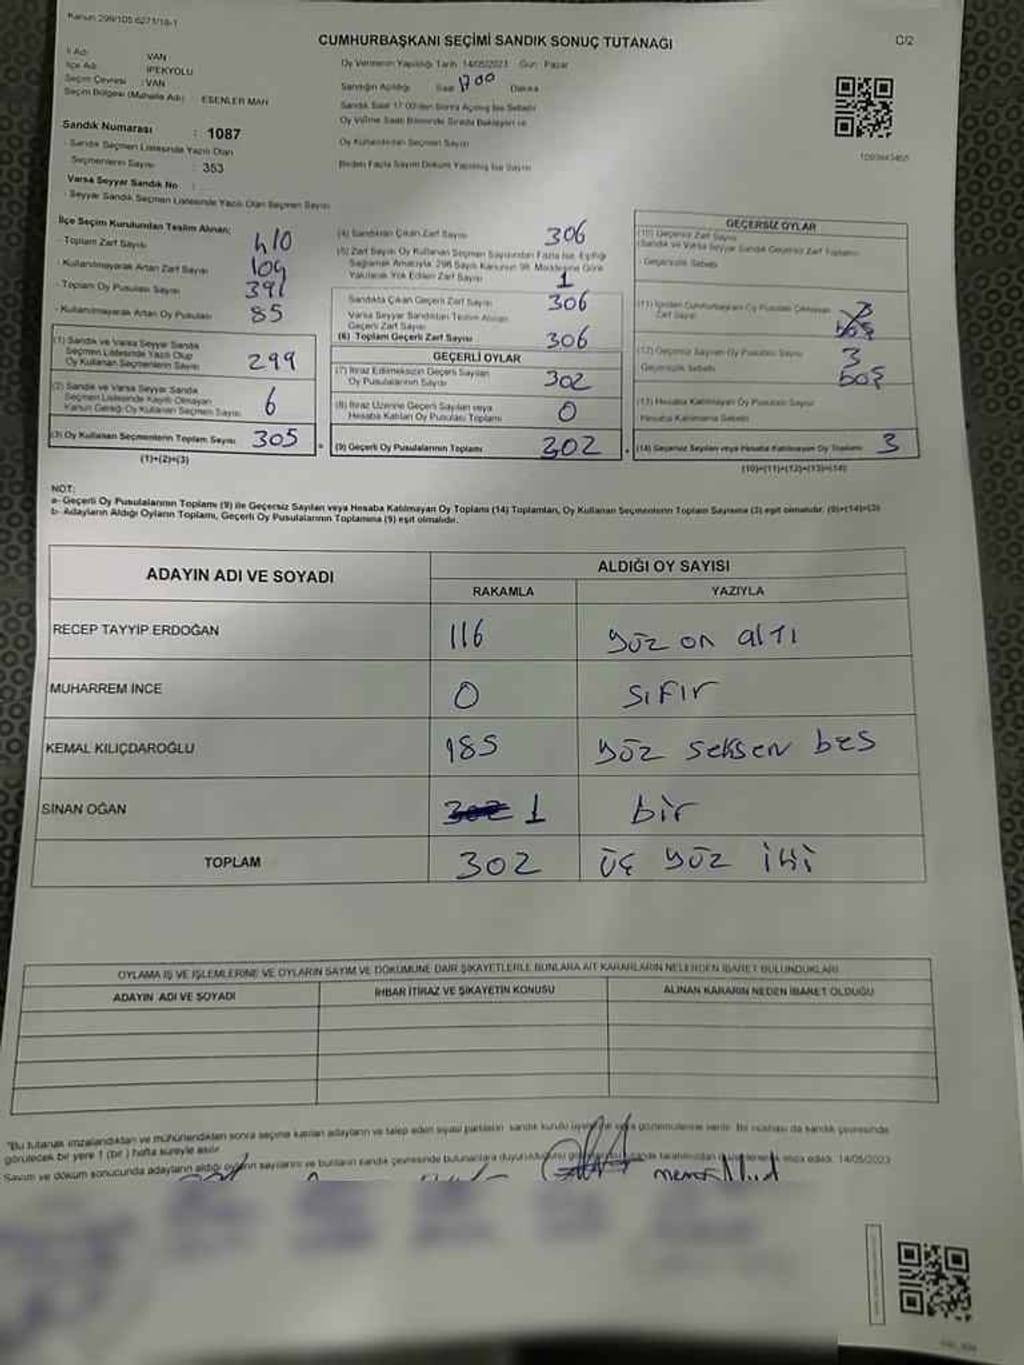 Kanun 298/105 6271/18-1
C/2
CUMHURBAŞKANI SEÇİMİ SANDIK SONUÇ TUTANAĞI
İl Adı : VAN
İlçe Adı : İPEKYOLU
Seçim Çevresi : VAN
Seçim Bölgesi (Mahalle Adı) : ESENLER MAH
Sandık Numarası : 1087
- Sandık Seçmen Listesinde Yazılı Olan
Seçmenlerin Sayısı : 353
Varsa Seyyar Sandık No :
- Seyyar Sandık Seçmen Listesinde Yazılı Olan Seçmen Sayısı
Oy Vermenin Yapıldığı Tarih 14/05/2023 Gün: Pazar
Sandığın Açıldığı Saat 17 00 Dakika
Sandık Saat 17:00'den Sonra Açılmış İse Sebebi
Oy Verme Saati Bitiminde Sırada Bekleyen ve
Oy Kullandırılan Seçmen Sayısı
Birden Fazla Sayım Döküm Yapılmış İse Sayısı
İlçe Seçim Kurulundan Teslim Alınan;
- Toplam Zarf Sayısı 410
- Kullanılmayarak Artan Zarf Sayısı 104
- Toplam Oy Pusulası Sayısı 391
- Kullanılmayarak Artan Oy Pusulası 85
(1) Sandık ve Varsa Seyyar Sandık
Seçmen Listesinde Yazılı Olup
Oy Kullanan Seçmenlerin Sayısı 299
(2) Sandık ve Varsa Seyyar Sandık
Seçmen Listesinde Kayıtlı Olmayan
Kanun Gereği Oy Kullanan Seçmen Sayısı 6
(3) Oy Kullanan Seçmenlerin Toplam Sayısı 305
(1)+(2)=(3)
(4) Sandıktan Çıkan Zarf Sayısı 306
(5) Zarf Sayısı Oy Kullanan Seçmen Sayısından Fazla İse, Eşitliği
Sağlamak Amacıyla, 298 Sayılı Kanunun 98. Maddesine Göre
Yakılarak Yok Edilen Zarf Sayısı 1
Sandıkta Çıkan Geçerli Zarf Sayısı 306
Varsa Seyyar Sandıktan Teslim Alınan
Geçerli Zarf Sayısı
(6) Toplam Geçerli Zarf Sayısı 306
GEÇERLİ OYLAR
(7) İtiraz Edilmeksizin Geçerli Sayılan
Oy Pusulalarının Sayısı 302
(8) İtiraz Üzerine Geçerli Sayılan veya
Hesaba Katılan Oy Pusulası Toplamı 0
(9) Geçerli Oy Pusulalarının Toplamı 302
GEÇERSİZ OYLAR
(10) Geçersiz Zarf Sayısı
(Sandık ve Varsa Seyyar Sandık Geçersiz Zarf Toplamı)
- Geçersizlik Sebebi
(11) İçinden Cumhurbaşkanı Oy Pusulası Çıkmayan
Zarf Sayısı
boş
(12) Geçersiz Sayılan Oy Pusulası Sayısı 3
Geçersizlik Sebebi boş
(13) Hesaba Katılmayan Oy Pusulası Sayısı
Hesaba Katılmama Sebebi
(14) Geçersiz Sayılan veya Hesaba Katılmayan Oy Toplamı 3
(10)+(11)+(12)+(13)=(14)
NOT:
a- Geçerli Oy Pusulalarının Toplamı (9) ile Geçersiz Sayılan veya Hesaba Katılmayan Oy Toplamı (14) Toplamları, Oy Kullanan Seçmenlerin Toplam Sayısına (3) eşit olmalıdır. (9)+(14)=(3)
b- Adayların Aldığı Oyların Toplamı, Geçerli Oy Pusulalarının Toplamına (9) eşit olmalıdır.
ADAYIN ADI VE SOYADI
ALDIĞI OY SAYISI
RAKAMLA YAZIYLA
RECEP TAYYİP ERDOĞAN 116 yüz on altı
MUHARREM İNCE 0 sıfır
KEMAL KILIÇDAROĞLU 185 yüz seksen beş
SİNAN OĞAN 302 1 bir
TOPLAM 302 üç yüz iki
OYLAMA İŞ VE İŞLEMLERİNE VE OYLARIN SAYIM VE DÖKÜMÜNE DAİR ŞİKAYETLERLE BUNLARA AİT KARARLARIN NELERDEN İBARET BULUNDUKLARI
ADAYIN ADI VE SOYADI İHBAR İTİRAZ VE ŞİKAYETİN KONUSU ALINAN KARARIN NEDEN İBARET OLDUĞU
"Bu tutanak imzalandıktan ve mühürlendikten sonra seçime katılan adayların ve talep eden siyasi partilerin sandık kurulu üyelerine veya gözlemcilerine verilir. Bir nüshası da sandık çevresinde
görülecek bir yere 1 (bir) hafta süreyle asılır.
Sayım ve döküm sonucunda adayların aldığı oyların sayılarını ve bunların sandık çevresinde bulunanlara duyurulduğunu 14/05/2023